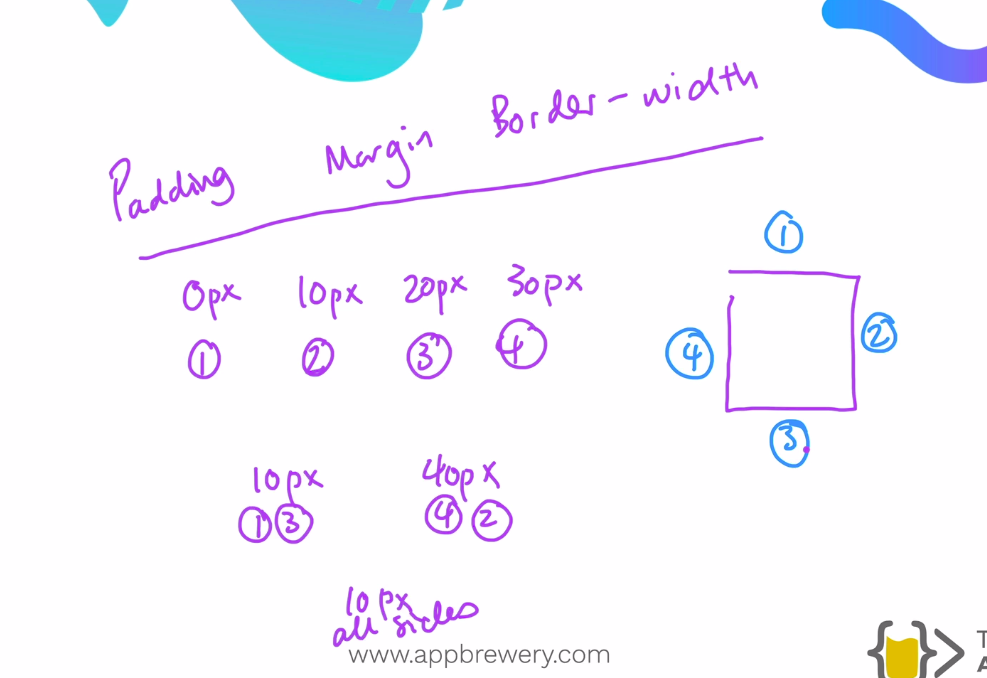 Padding Margin Border-width
0px 10px 20px 30px
1 2 3 4
1
4 2
3
10px 40px
1 3 4 2
10px
all sides
www.appbrewery.com
T
A